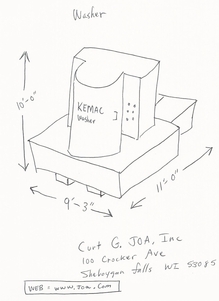 Washer
10'-0"
KEMAC
Washer
11'-0"
9'-3"
Curt G. JOA, Inc
100 Crocker Ave
Sheboygan Falls WI 53085
WEB: www.joa.com